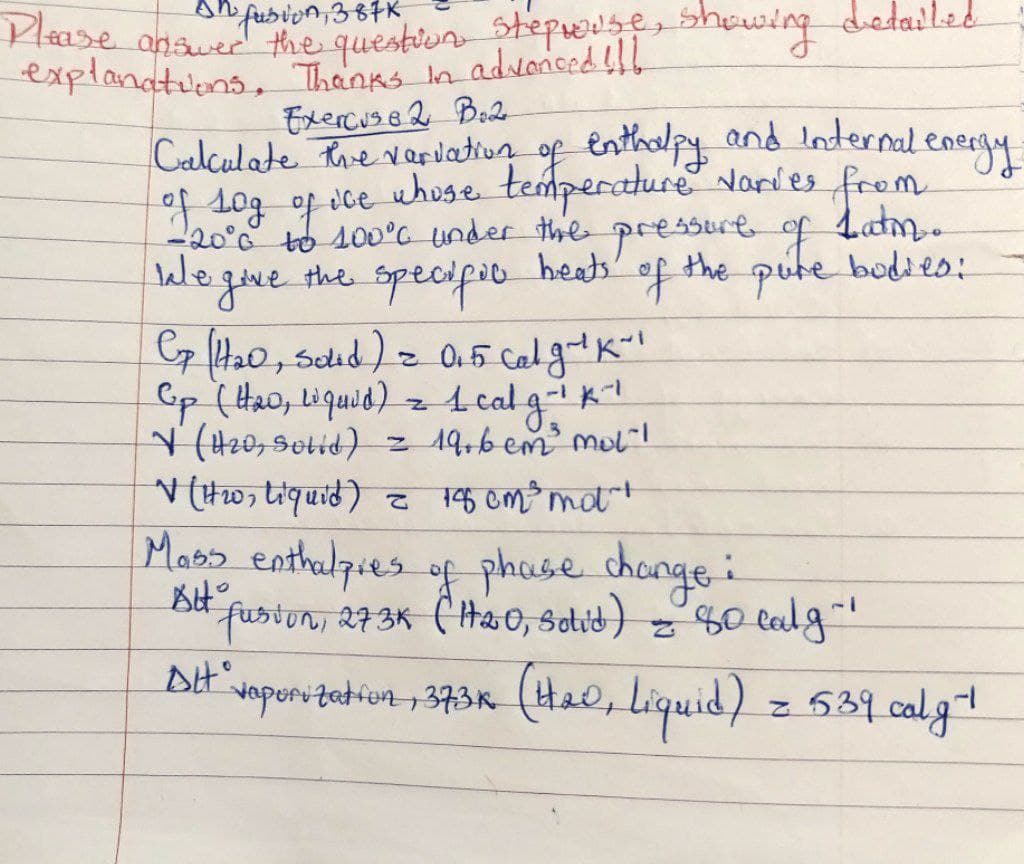 Δh fusion, 387K =
Please answer the question stepwise, showing detailed
explanations. Thanks In advanced!!!
Exercise 2 B.2
Calculate the variation of enthalpy and Internal energy
of 10g of ice whose temperature varies from
-20°C to 100°C under the pressure of 1atm.
We give the specific heats of the pure bodies:
Cp (H2O, solid) = 0,5 Cal g⁻¹ K⁻¹
Cp (H2O, liquid) = 1 cal g⁻¹ K⁻¹
V (H2O, solid) = 19.6 cm³ mol⁻¹
V (H2O, liquid) = 18 cm³ mol⁻¹
Mass enthalpies of phase change:
ΔH° fusion, 273K (H2O, Solid) = 80 cal g⁻¹
ΔH° vaporization, 373K (H2O, Liquid) = 539 cal g⁻¹